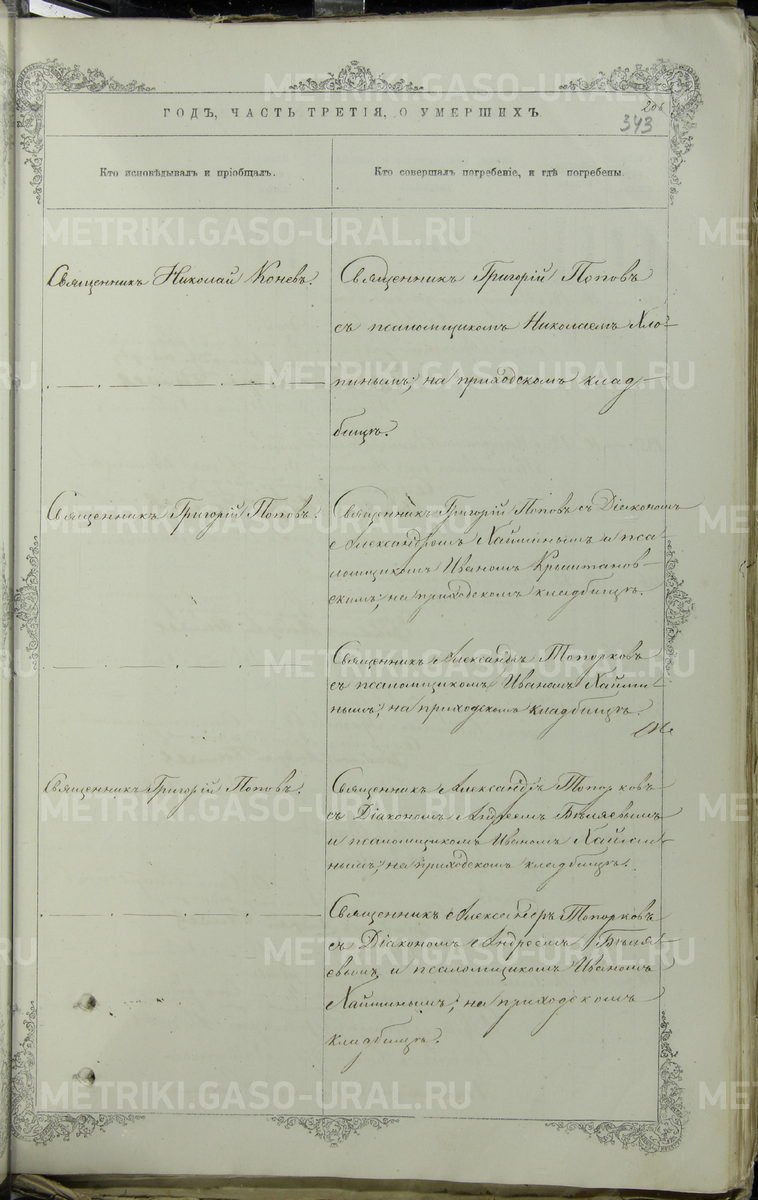 206
343
ГОДЪ, ЧАСТЬ ТРЕТІЯ, О УМЕРШИХЪ.
Кто исповѣдывалъ и пріобщалъ.
Кто совершалъ погребеніе, и гдѣ погребены.
Священникъ Николай Коневъ.
Священникъ Григорій Поповъ
съ псаломщикомъ Николаемъ Хло-
пинымъ; на приходскомъ клад-
бищѣ.
Священникъ Григорій Поповъ.
Священникъ Григорій Поповъ съ Діакономъ
Александромъ Хайминымъ и пса-
ломщикомъ Иваномъ Крыштанов-
скимъ; на приходскомъ кладбищѣ.
Священникъ Александръ Топорковъ
съ псаломщикомъ Иваномъ Хайми-
нымъ; на приходскомъ кладбищѣ.
Священникъ Григорій Поповъ.
Священникъ Александръ Топорковъ
съ Діакономъ Андреемъ Бѣляевымъ
и псаломщикомъ Иваномъ Хайми-
нымъ; на приходскомъ кладбищѣ.
Священникъ Александръ Топорковъ
съ Діакономъ Андреемъ Бѣля-
евымъ и псаломщикомъ Иваномъ
Хайминымъ; на приходскомъ
кладбищѣ.
METRIKI.GASO-URAL.RU